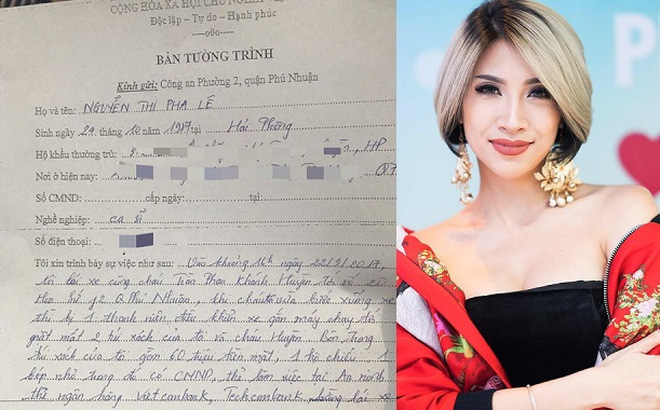 CỘNG HÒA XÃ HỘI CHỦ NGHĨA VIỆT
Độc lập – Tự do – Hạnh phúc
---o0o---
BẢN TƯỜNG TRÌNH
Kính gửi: Công an Phường 2, quận Phú Nhuận
Họ và tên: NGUYỄN THỊ PHA LÊ
Sinh ngày 29 tháng 10 năm 1987 tại Hải Phòng
Hộ khẩu thường trú: HP
Nơi ở hiện nay:
Số CMND: cấp ngày: tại:
Nghề nghiệp: ca sĩ
Số điện thoại:
Tôi xin trình bày sự việc như sau: Vào khoảng 11h ngày 22/9/2017,
tôi lái xe cùng cháu Trần Phan Khánh Huyền tới số 20
Hoa Sứ f2 Q Phú Nhuận, khi cháu vừa bước xuống xe
thì bị 1 thanh niên điều khiển xe gắn máy chạy tới
giật mất 2 túi xách của tôi và cháu Huyền. Bên trong
túi xách của tôi gồm 60 triệu tiền mặt, 1 hộ chiếu, 1
bóp nhỏ trong đó có CMND, thẻ làm việc tại
thẻ ngân hàng vietcombank, Techcombank, bằng lái xe
P